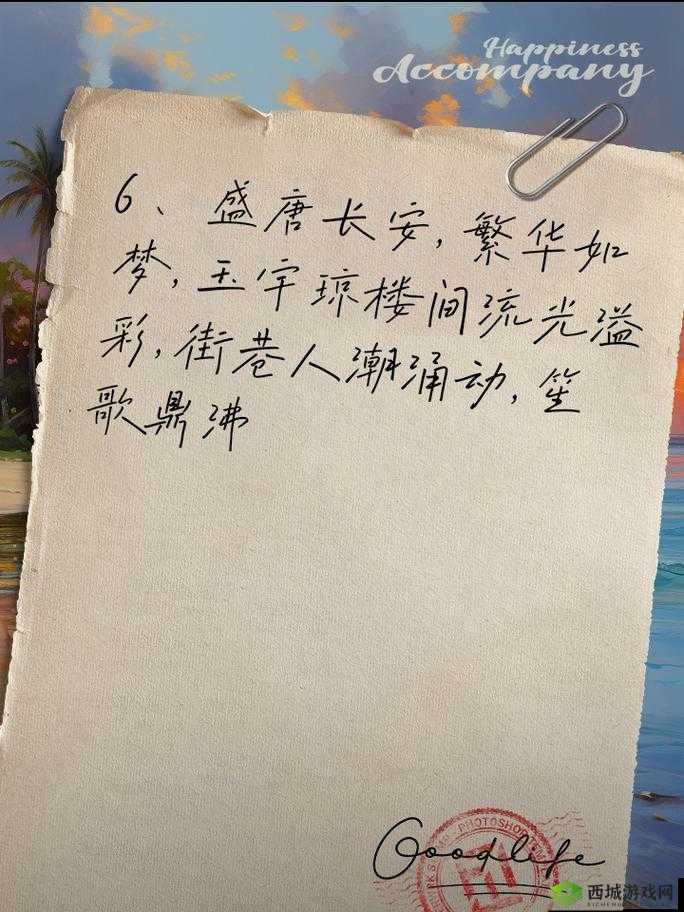 Happiness
Accompany
6、盛唐长安,繁华如
梦,玉宇琼楼间流光溢
彩,街巷人潮涌动,笙
歌鼎沸
PHOTOSHOP
Goodlife
西城游戏网